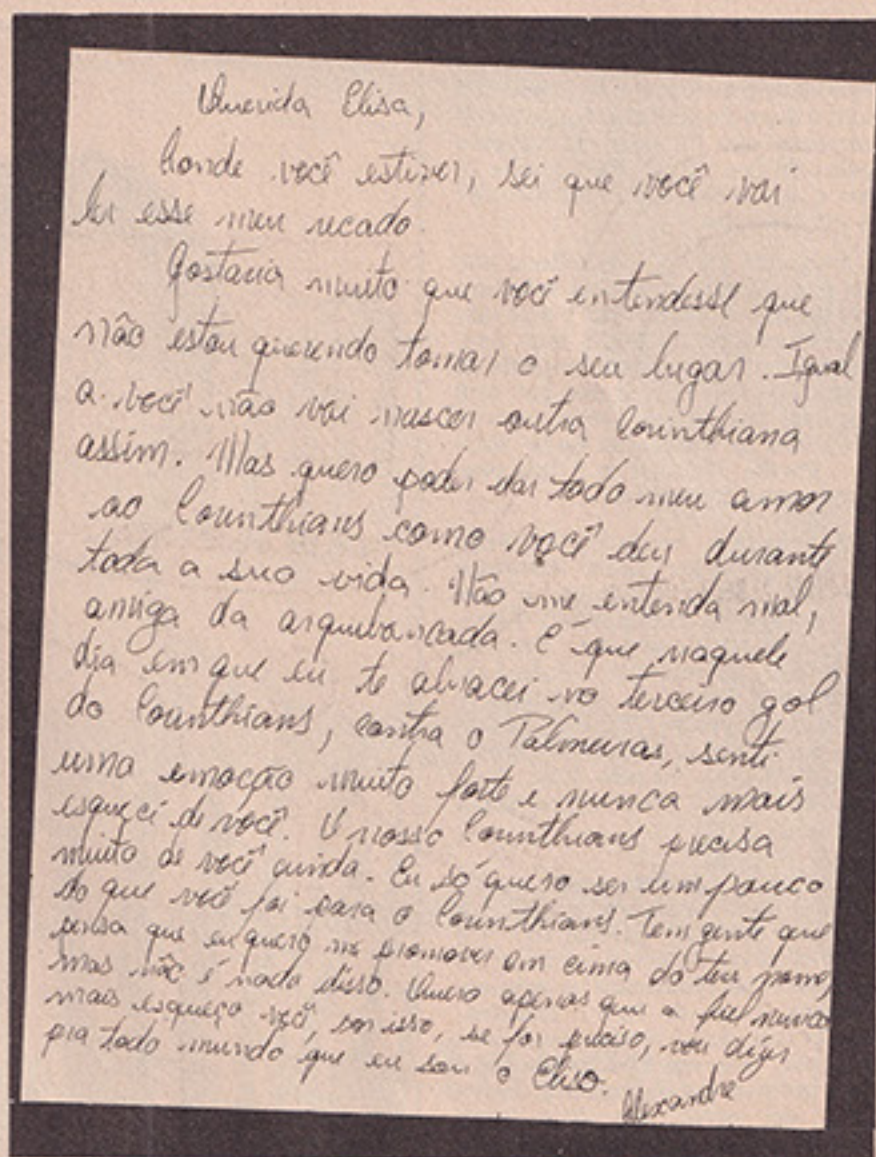 Querida Elisa,
Aonde você estiver, sei que você vai
ler esse meu recado.
Gostaria muito que você entendesse que
não estou querendo tomar o seu lugar. Igual
a você não vai nascer outra Corinthiana
assim. Mas quero poder dar todo meu amor
ao Corinthians como você deu durante
toda a sua vida. Não me entenda mal,
amiga da arquibancada. É que naquele
dia em que eu te abracei no terceiro gol
do Corinthians, contra o Palmeiras, senti
uma emoção muito forte e nunca mais
esqueci de você. O nosso Corinthians precisa
muito de você ainda. Eu só quero ser um pouco
do que você foi para o Corinthians. Tem gente que
pensa que eu quero me promover em cima do teu nome,
mas não é nada disso. Quero apenas que a fiel nunca
mais esqueça você, por isso, se for preciso, vou dizer
pra todo mundo que eu sou o Eliso.
Alexandre